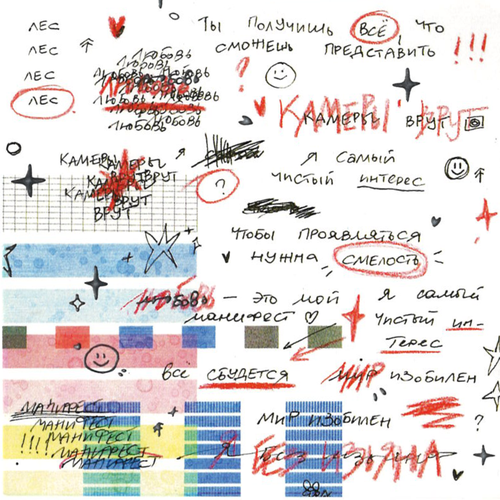 ЛЕС
ЛЕС
ЛЕС
ЛЕС
ЛЮБОВЬ
ЛЮБОВЬ
ЛЮБОВЬ
ЛЮБОВЬ
ЛЮБОВЬ
ЛЮБОВЬ
ТЫ ПОЛУЧИШЬ ВСЁ, ЧТО
СМОЖЕШЬ ПРЕДСТАВИТЬ !!!
?
КАМЕРЫ ВРУТ
КАМЕРЫ ВРУТ
КАМЕРЫ
КАМЕРЫ
ВРУТ
КАМЕРЫ
ВРУТ
ВРУТ
?
Я САМЫЙ
ЧИСТЫЙ ИНТЕРЕС
ЧТОБЫ ПРОЯВЛЯТЬСЯ
НУЖНА СМЕЛОСТЬ
ЛЮБОВЬ — ЭТО МОЙ
МАНИФЕСТ
Я САМЫЙ
ЧИСТЫЙ ИН-
ТЕРЕС
ВСЁ СБУДЕТСЯ
МИР ИЗОБИЛЕН
МИР ИЗОБИЛЕН ?
МАНИФЕСТ
МАНИФЕСТ
!!!! МАНИФЕСТ
МАНИФЕСТ
МАНИФЕСТ
Я БЕЗ ИЗЪЯНА